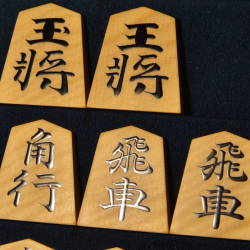 玉將
王將
角行
飛車
飛車